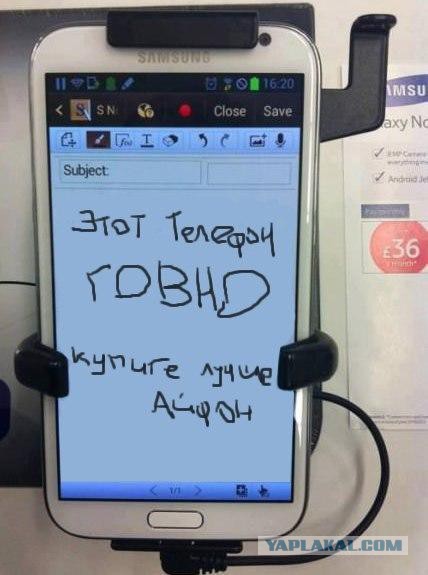 SAMSUNG
16:20
S No
Close
Save
Subject:
ЭТОТ Телефон
ГОВНО
купите лучше
Айфон
1/1
AMSU
axy No
8 MP Camera
Android Jel
Pay monthly
£36
YAPLAKAL.COM